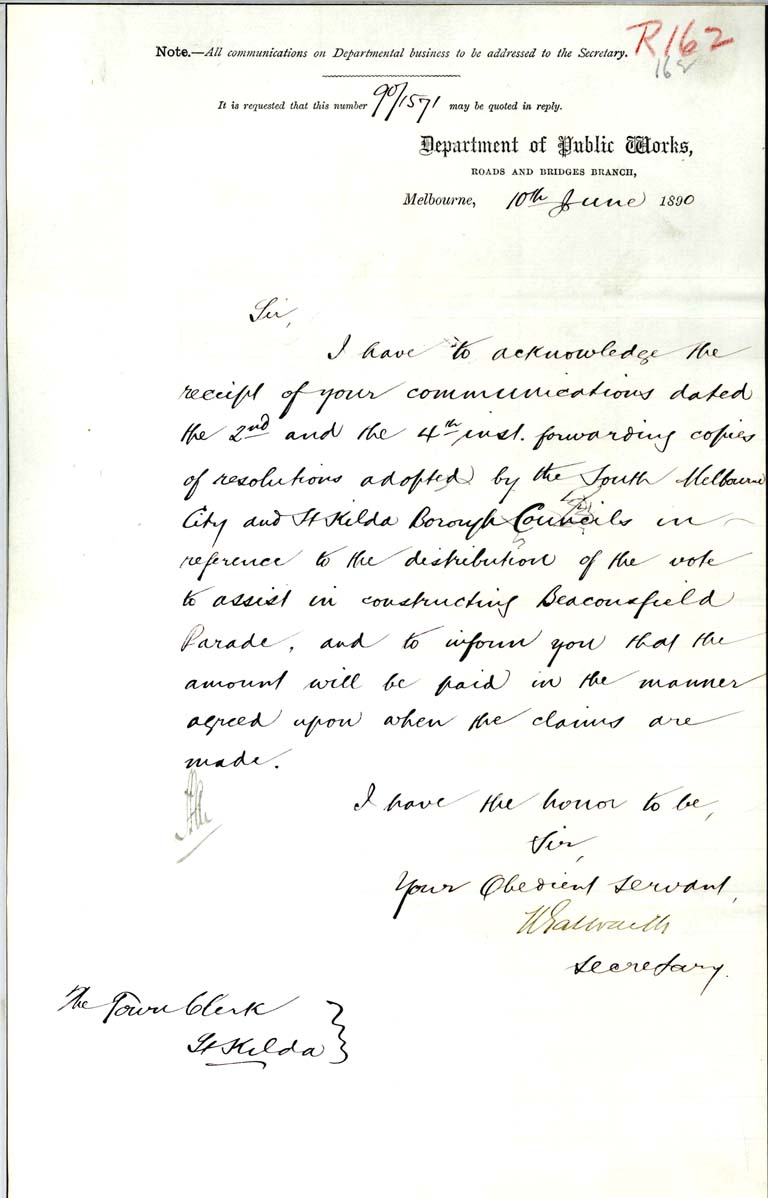 R162
162
Note.—All communications on Departmental business to be addressed to the Secretary.
It is requested that this number 90/1571 may be quoted in reply.
Department of Public Works,
ROADS AND BRIDGES BRANCH,
Melbourne, 10th June 1890
Sir,
I have to acknowledge the
receipt of your communications dated
the 2nd and the 4th inst. forwarding copies
of resolutions adopted by the South Melbourne
City and St Kilda Borough Councils in
reference to the distribution of the vote
to assist in constructing Beaconsfield
Parade, and to inform you that the
amount will be paid in the manner
agreed upon when the claims are
made.
I have the honor to be,
Sir,
Your Obedient Servant,
Secretary.
The Town Clerk
St Kilda